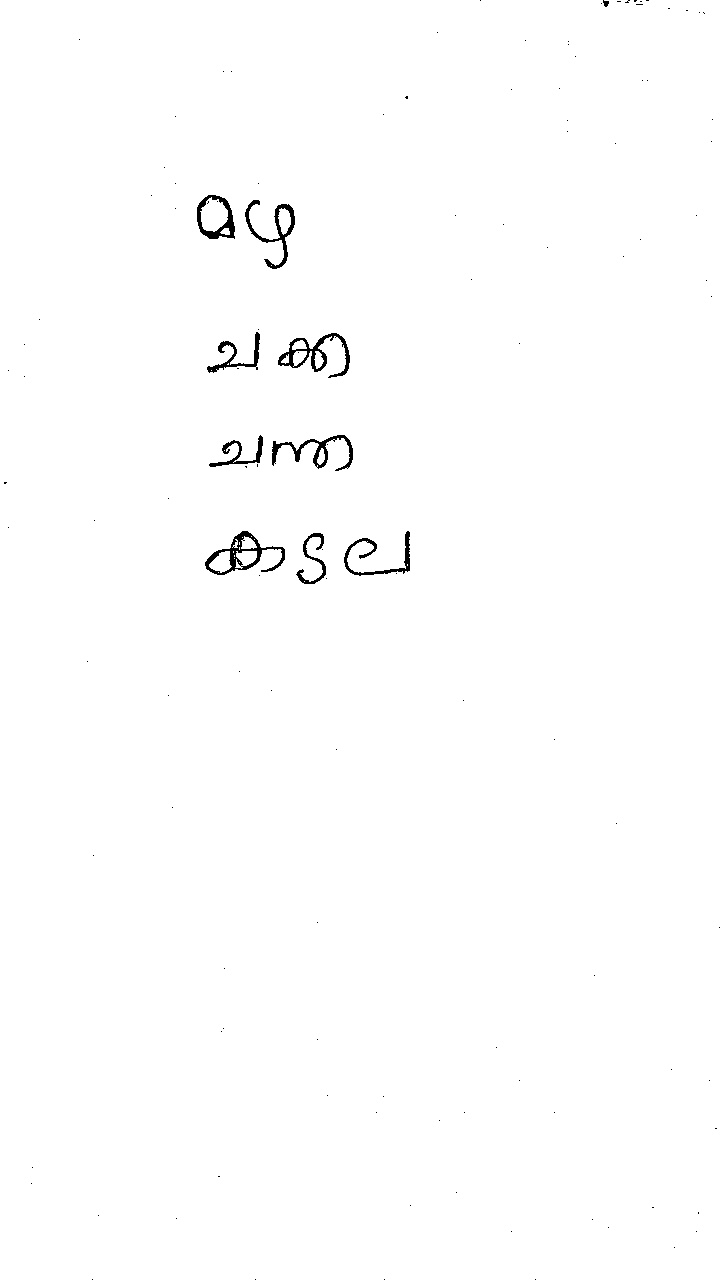 മഴ
ചക്ക
ചന്ത
കടല